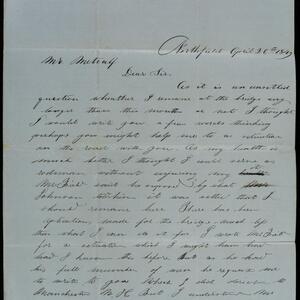 Northfield April 20th 18
Mr Metcalf
Dear Sir.
As it is an unsettled
question wheather I remain at the bridge any
longer than this month or not I thought
I would write you a few words thinking
perhaps you might help me to a situation
on the road with you. As my health is
much better I thought I could serve as
rodsman without injuring my
Mr said he supposed by what
Johnson told him it was settled that I
should remain here There has been
application made for the bridge most by
than what I can do it for I wrote Mr
for a situation which I might have
had I known this before but as he has
his full number of men he request me
to write to you Where I shall
Manchester N. H. But I understand Mr